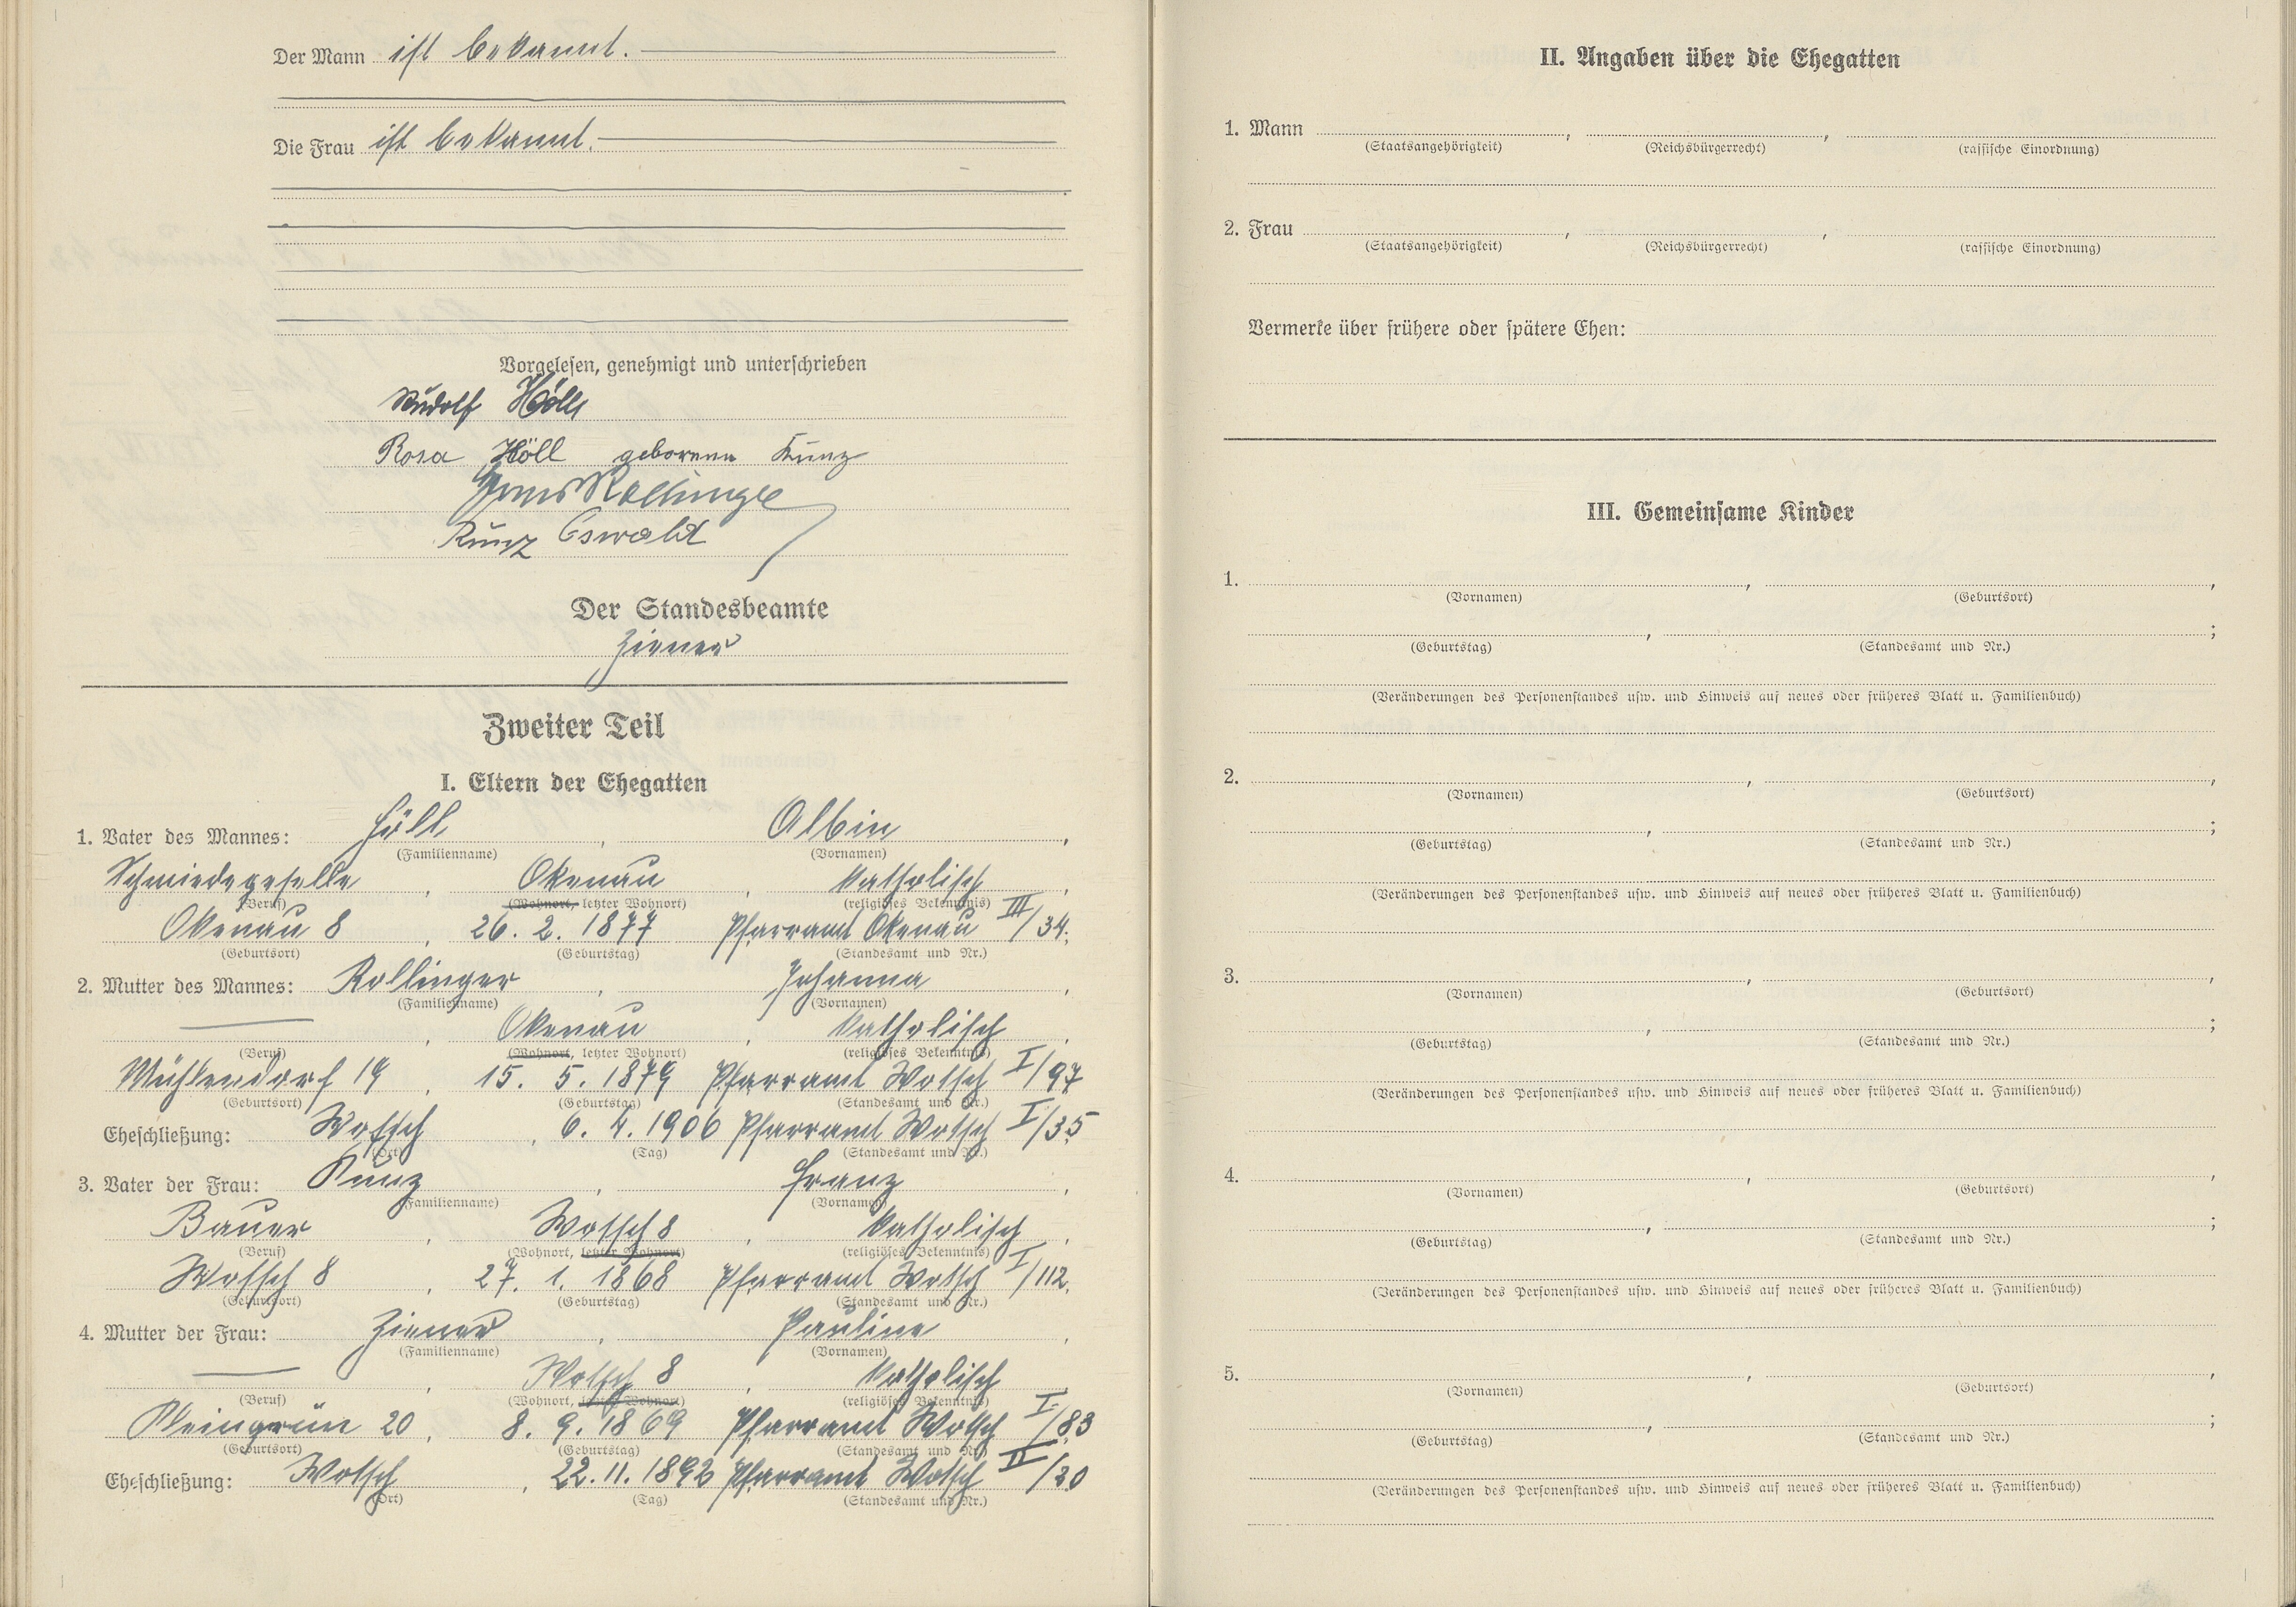 Der Mann ist bekannt.
Die Frau ist bekannt.
Vorgelesen, genehmigt und unterschrieben
Rudolf Höll
Rosa Höll geborene Kunz
Kunz Oswald
Der Standesbeamte
Ziener
Zweiter Teil
I. Eltern der Ehegatten
1. Vater des Mannes: Höll, Albin,
(Familienname) (Vornamen)
Schmiedegeselle, Okenau, katholisch,
(Beruf) (Wohnort, letzter Wohnort) (religiöses Bekenntnis)
Okenau 8, 26. 2. 1877 Pfarramt Okenau III/34.
(Geburtsort) (Geburtstag) (Standesamt und Nr.)
2. Mutter des Mannes: Rollinger, Johanna,
(Familienname) (Vornamen)
—, Okenau, katholisch,
(Beruf) (Wohnort, letzter Wohnort) (religiöses Bekenntnis)
Mühlendorf 19, 15. 5. 1879 Pfarramt Wotsch I/97
(Geburtsort) (Geburtstag) (Standesamt und Nr.)
Eheschließung: Wotsch, 6. 4. 1906 Pfarramt Wotsch I/35
(Ort) (Tag) (Standesamt und Nr.)
3. Vater der Frau: Kunz, Franz,
(Familienname) (Vornamen)
Bauer, Wotsch 8, katholisch,
(Beruf) (Wohnort, letzter Wohnort) (religiöses Bekenntnis)
Wotsch 8, 27. 1. 1868 Pfarramt Wotsch I/112.
(Geburtsort) (Geburtstag) (Standesamt und Nr.)
4. Mutter der Frau: Ziener, Pauline,
(Familienname) (Vornamen)
—, Wotsch 8, katholisch,
(Beruf) (Wohnort, letzter Wohnort) (religiöses Bekenntnis)
Kleingrün 20, 8. 9. 1869 Pfarramt Wotsch I/83
(Geburtsort) (Geburtstag) (Standesamt und Nr.)
Eheschließung: Wotsch, 22. 11. Pfarramt Wotsch II/20
(Ort) (Tag) (Standesamt und Nr.)
II. Angaben über die Ehegatten
1. Mann , ,
(Staatsangehörigkeit) (Reichsbürgerrecht) (rassische Einordnung)
2. Frau , ,
(Staatsangehörigkeit) (Reichsbürgerrecht) (rassische Einordnung)
Vermerke über frühere oder spätere Ehen:
III. Gemeinsame Kinder
1. , ,
(Vornamen) (Geburtsort)
, ;
(Geburtstag) (Standesamt und Nr.)
(Veränderungen des Personenstandes usw. und Hinweis auf neues oder früheres Blatt u. Familienbuch)
2. , ,
(Vornamen) (Geburtsort)
, ;
(Geburtstag) (Standesamt und Nr.)
(Veränderungen des Personenstandes usw. und Hinweis auf neues oder früheres Blatt u. Familienbuch)
3. , ,
(Vornamen) (Geburtsort)
, ;
(Geburtstag) (Standesamt und Nr.)
(Veränderungen des Personenstandes usw. und Hinweis auf neues oder früheres Blatt u. Familienbuch)
4. , ,
(Vornamen) (Geburtsort)
, ;
(Geburtstag) (Standesamt und Nr.)
(Veränderungen des Personenstandes usw. und Hinweis auf neues oder früheres Blatt u. Familienbuch)
5. , ,
(Vornamen) (Geburtsort)
, ;
(Geburtstag) (Standesamt und Nr.)
(Veränderungen des Personenstandes usw. und Hinweis auf neues oder früheres Blatt u. Familienbuch)